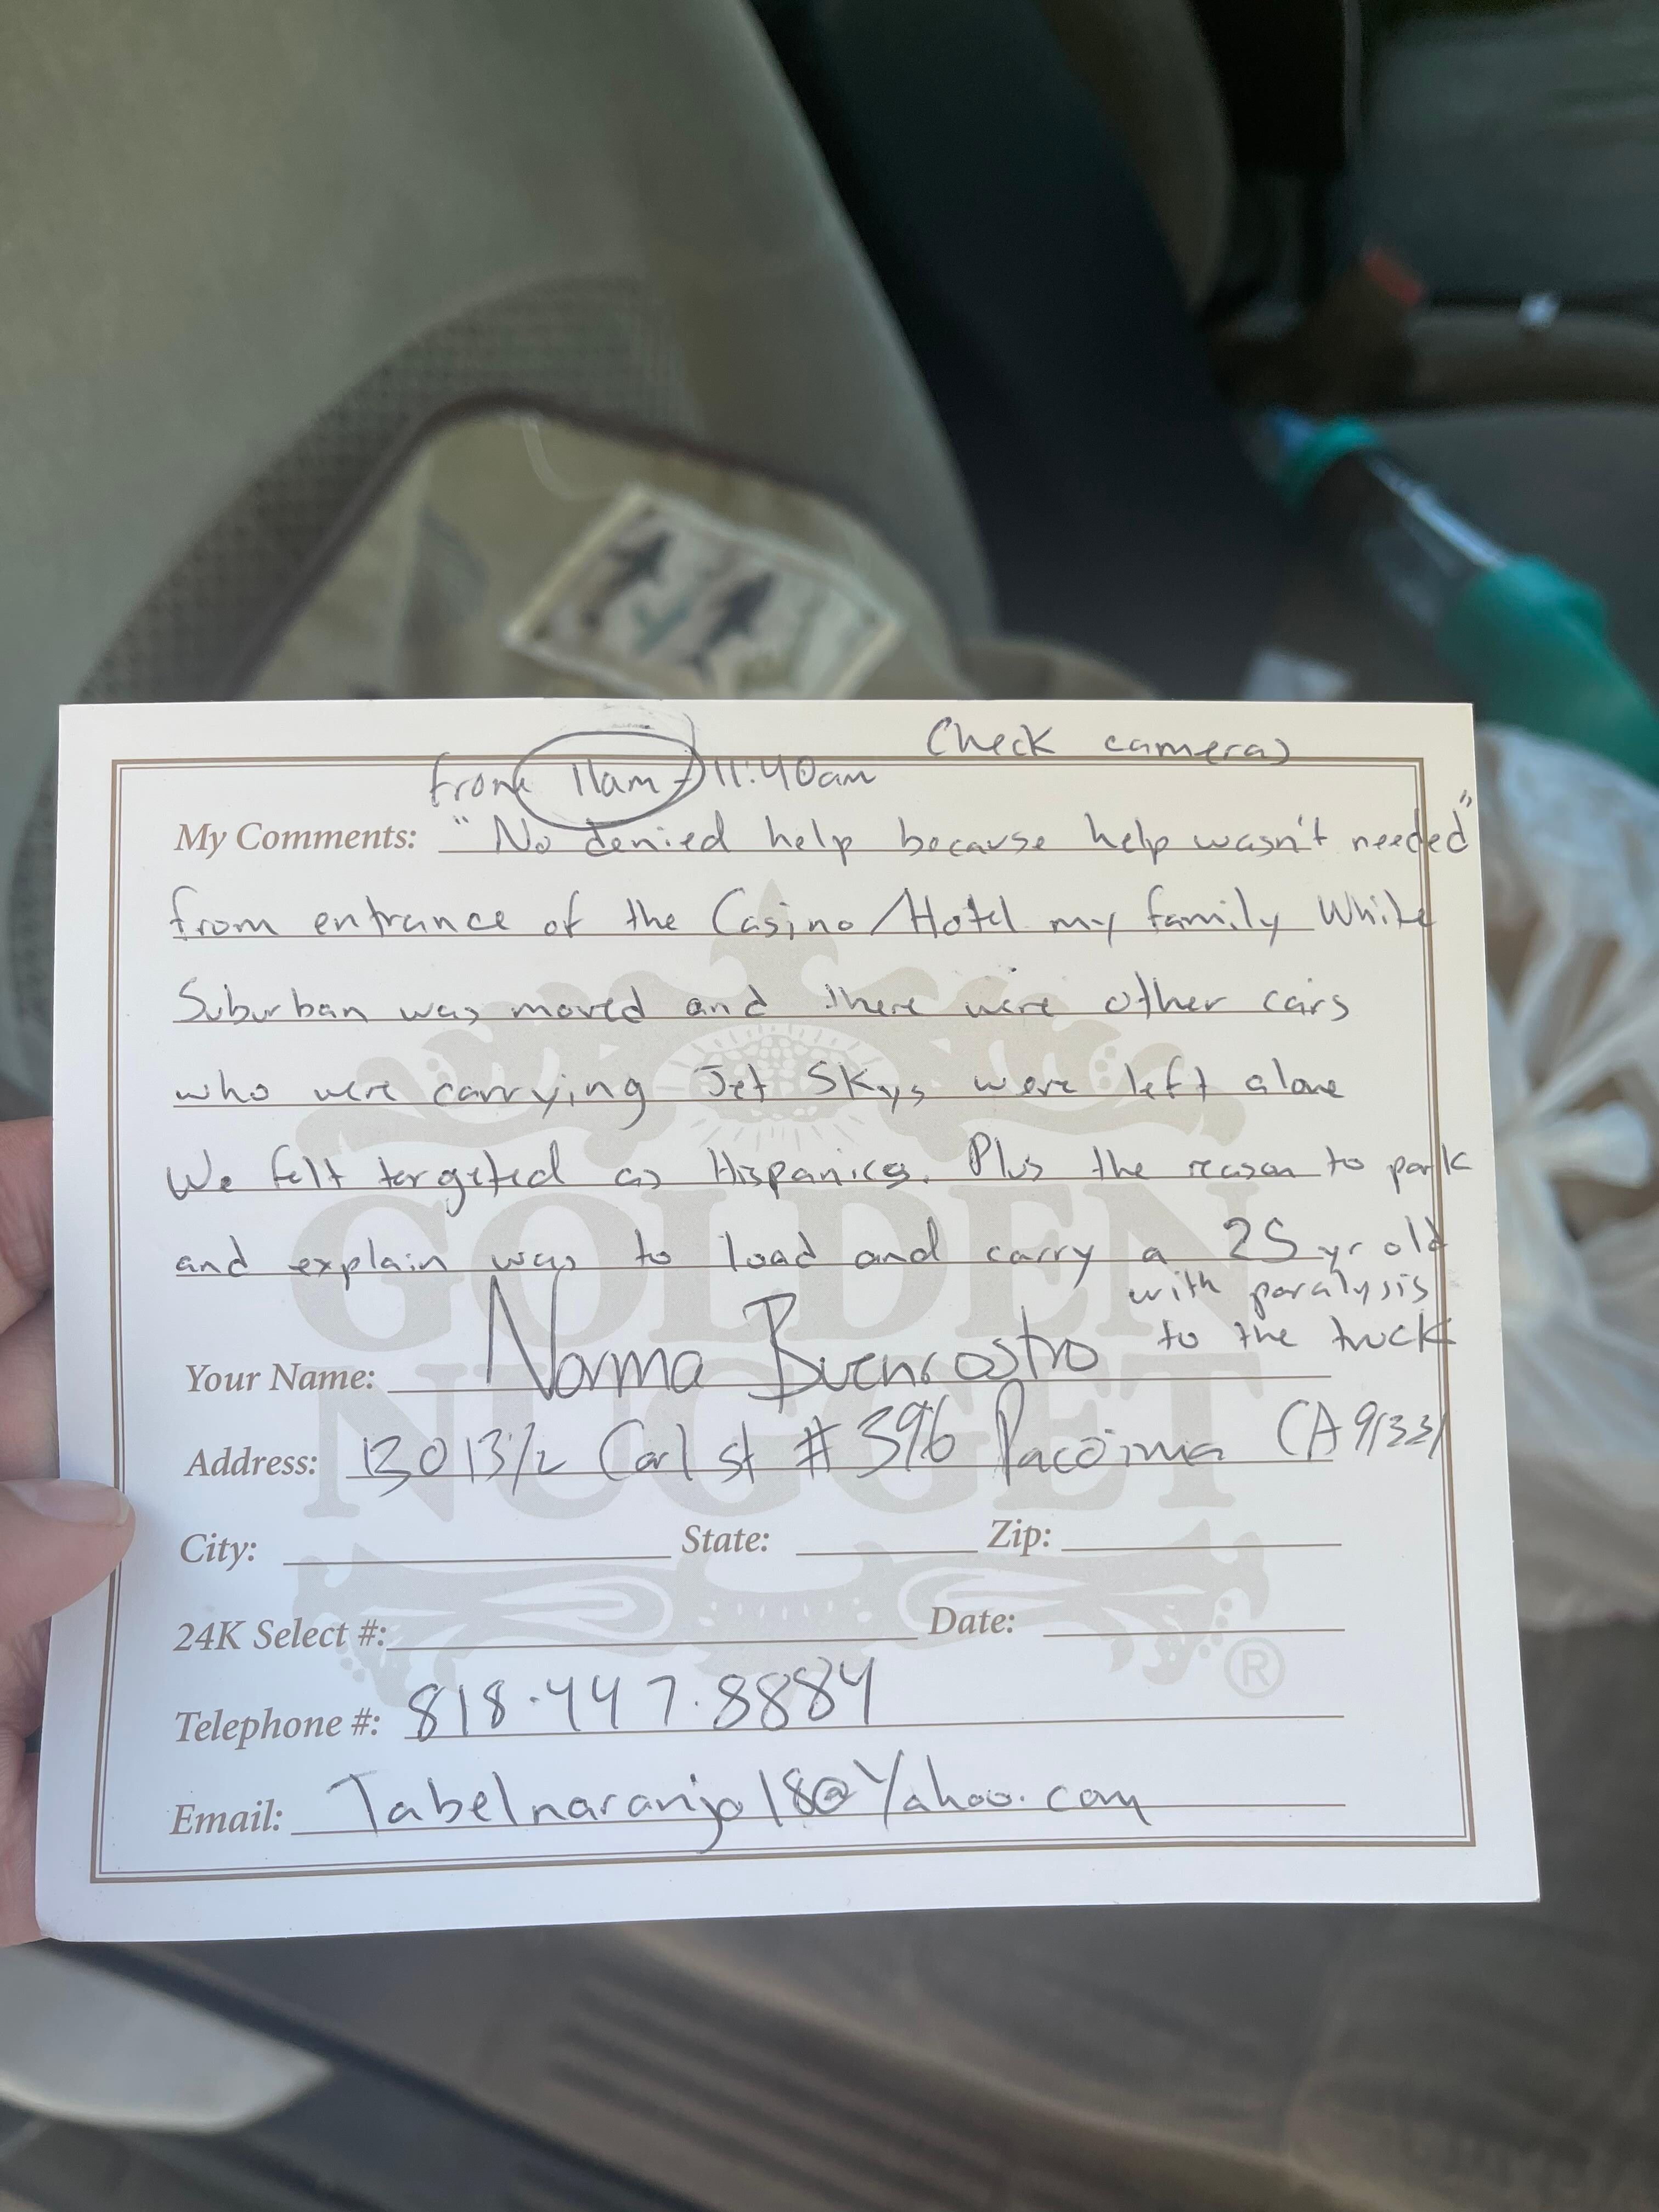 Check cameras
from 11am - 11:40am
My Comments: "No denied help because help wasn't needed"
from entrance of the Casino/Hotel my family White
Suburban was moved and there were other cars
who were carrying Jet Skys were left alone
We felt targeted as Hispanics. Plus the reason to park
and explain was to load and carry a 25 yr old
with paralysis
to the truck
GOLDEN
NUGGET
®
Your Name: Norma Buenrostro
Address: 13013 1/2 Carl st # 396 Pacoima CA 91331
City: State: Zip:
24K Select #: Date:
Telephone #: 818.447.8884
Email: Tabelnaranjo18@Yahoo.com